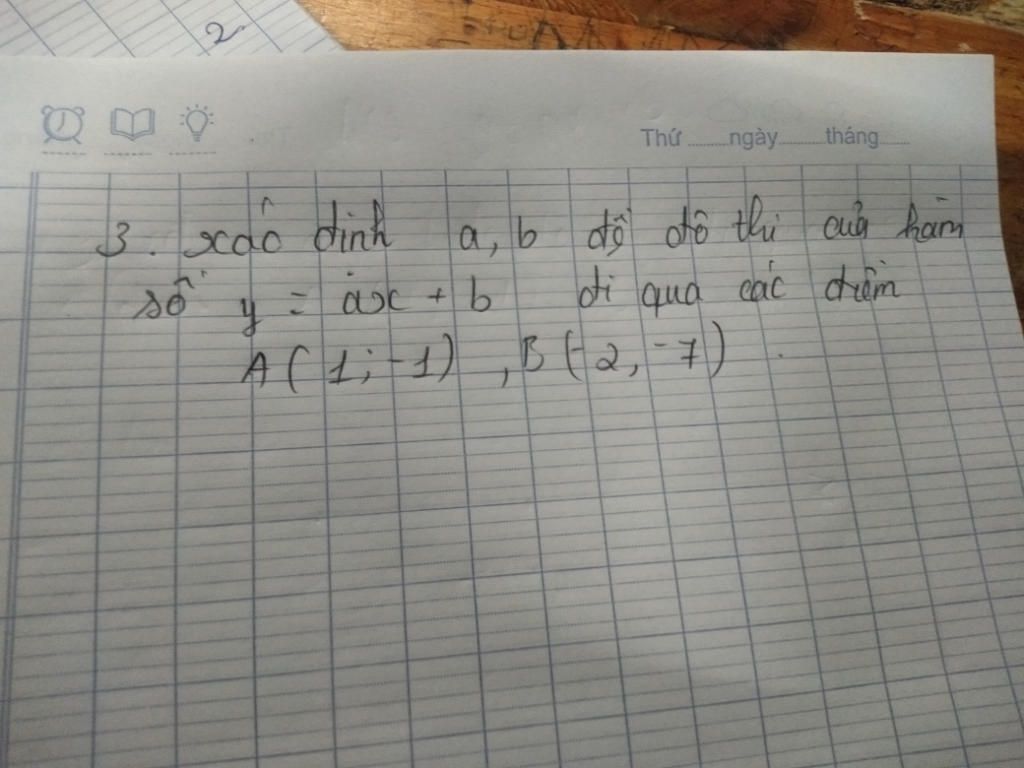 2
Thứ ........ngày.........tháng......
3. xác định a, b để đồ thị của hàm
số y = ax + b đi qua các điểm
A ( 1; -1 ) , B (-2, -7) .